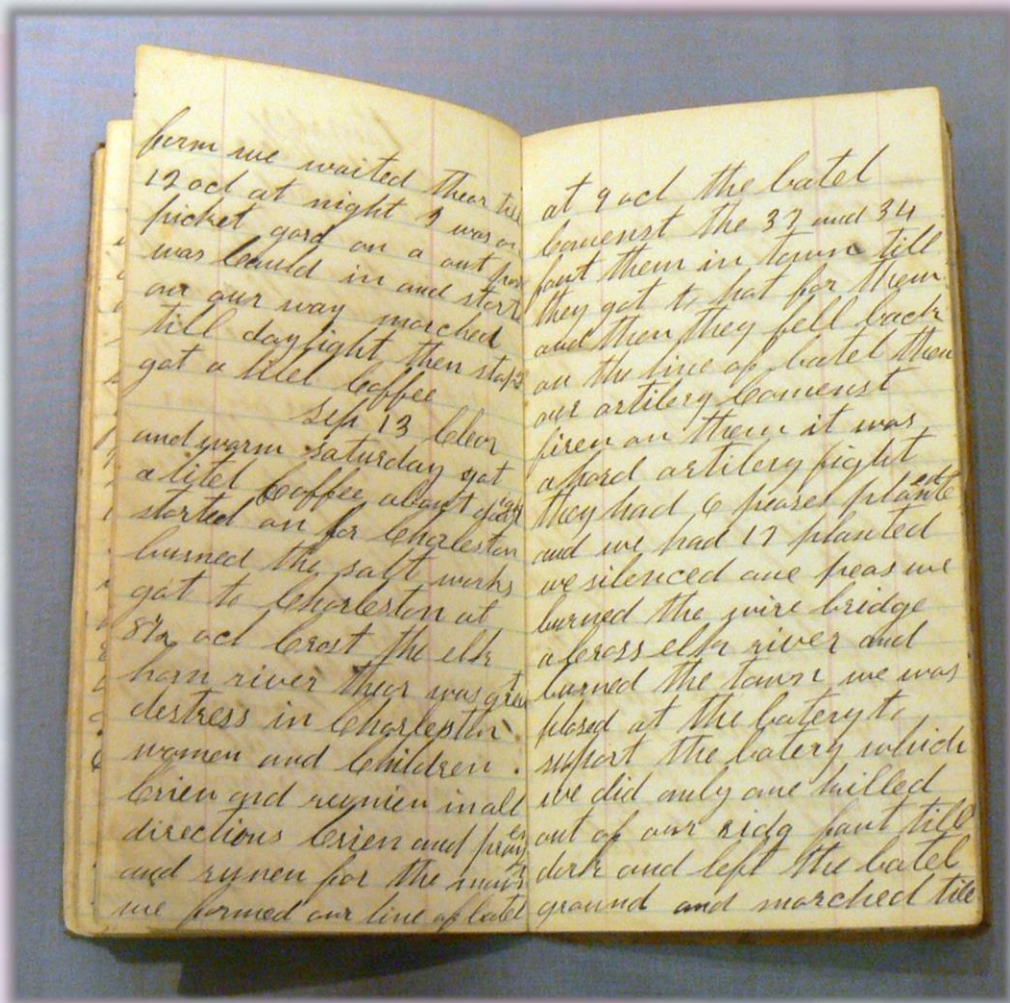 farm we waited thear till
12 ocl at night I was on
picket gard on a out post
was Could in and start
on our way marched
till daylight then stopt
got a litel Coffee
Sep 13 Clear
and warm saturday got
a litel Coffee about
started on for Charleston
burned the salt works
got to Charleston at
8½ ocl Crost the elk
horn river thear was grea
destress in Charleston
women and Children
Crien and runien in all
directions Crien and prayen
and runen for the
we formed our line of batel
at 9 ocl the batel
Comenst the 37 and 34
faut them in town till
they got to hot for them
and then they fell back
on the line of batel then
our artilery Comenst
firen on them it was
a hard artilery fight
they had 6 peases planted
and we had 12 planted
we silenced one peas we
burned the wire bridge
across elk river and
burned the town we was
plased at the batery to
support the batery which
we did only one killed
out of our ridg faut till
dark and left the batel
ground and marched till